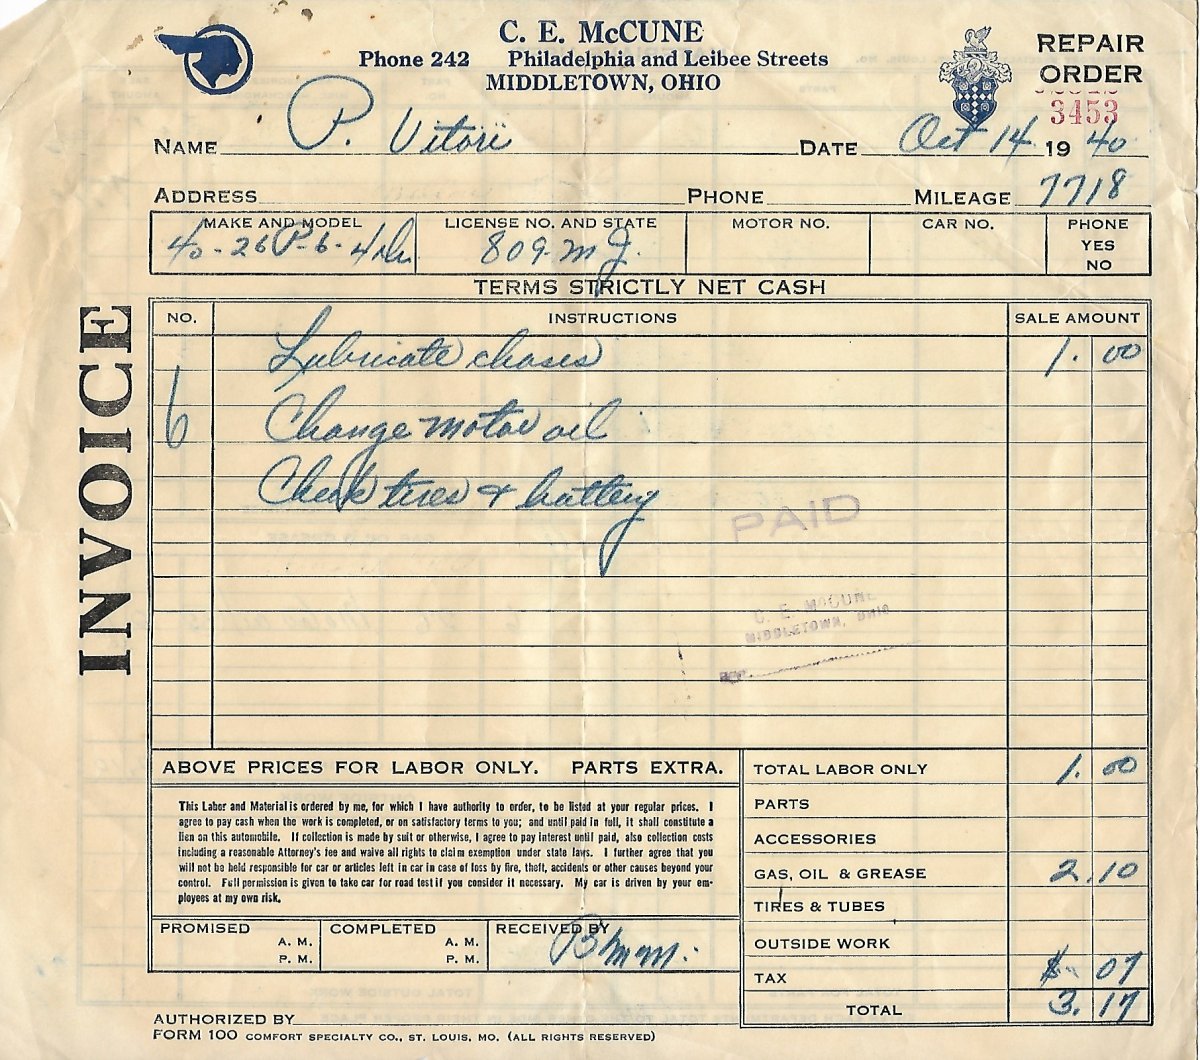 C. E. McCUNE
Phone 242 Philadelphia and Leibee Streets
MIDDLETOWN, OHIO
REPAIR
ORDER
3453
NAME P. Vitori DATE Oct 14 19 40
ADDRESS PHONE MILEAGE 7718
MAKE AND MODEL LICENSE NO. AND STATE MOTOR NO. CAR NO. PHONE
YES
NO
40-26P-6- 809-MJ.
TERMS STRICTLY NET CASH
INVOICE
NO. INSTRUCTIONS SALE AMOUNT
Lubricate chases 1.00
6 Change motor oil
Check tires & battery
PAID
C. E. McCUNE
MIDDLETOWN, OHIO
ABOVE PRICES FOR LABOR ONLY. PARTS EXTRA.
This Labor and Material is ordered by me, for which I have authority to order, to be listed at your regular prices. I
agree to pay cash when the work is completed, or on satisfactory terms to you; and until paid in full, it shall constitute a
lien on this automobile. If collection is made by suit or otherwise, I agree to pay interest until paid, also collection costs
including a reasonable Attorney's fee and waive all rights to claim exemption under state laws. I further agree that you
will not be held responsible for car or articles left in car in case of loss by fire, theft, accidents or other causes beyond your
control. Full permission is given to take car for road test if you consider it necessary. My car is driven by your em-
ployees at my own risk.
TOTAL LABOR ONLY 1.00
PARTS
ACCESSORIES
GAS, OIL & GREASE 2.10
TIRES & TUBES
OUTSIDE WORK
TAX .07
TOTAL 3.17
PROMISED COMPLETED RECEIVED BY
A. M. A. M.
P. M. P. M.
AUTHORIZED BY
FORM 100 COMFORT SPECIALTY CO., ST. LOUIS, MO. (ALL RIGHTS RESERVED)